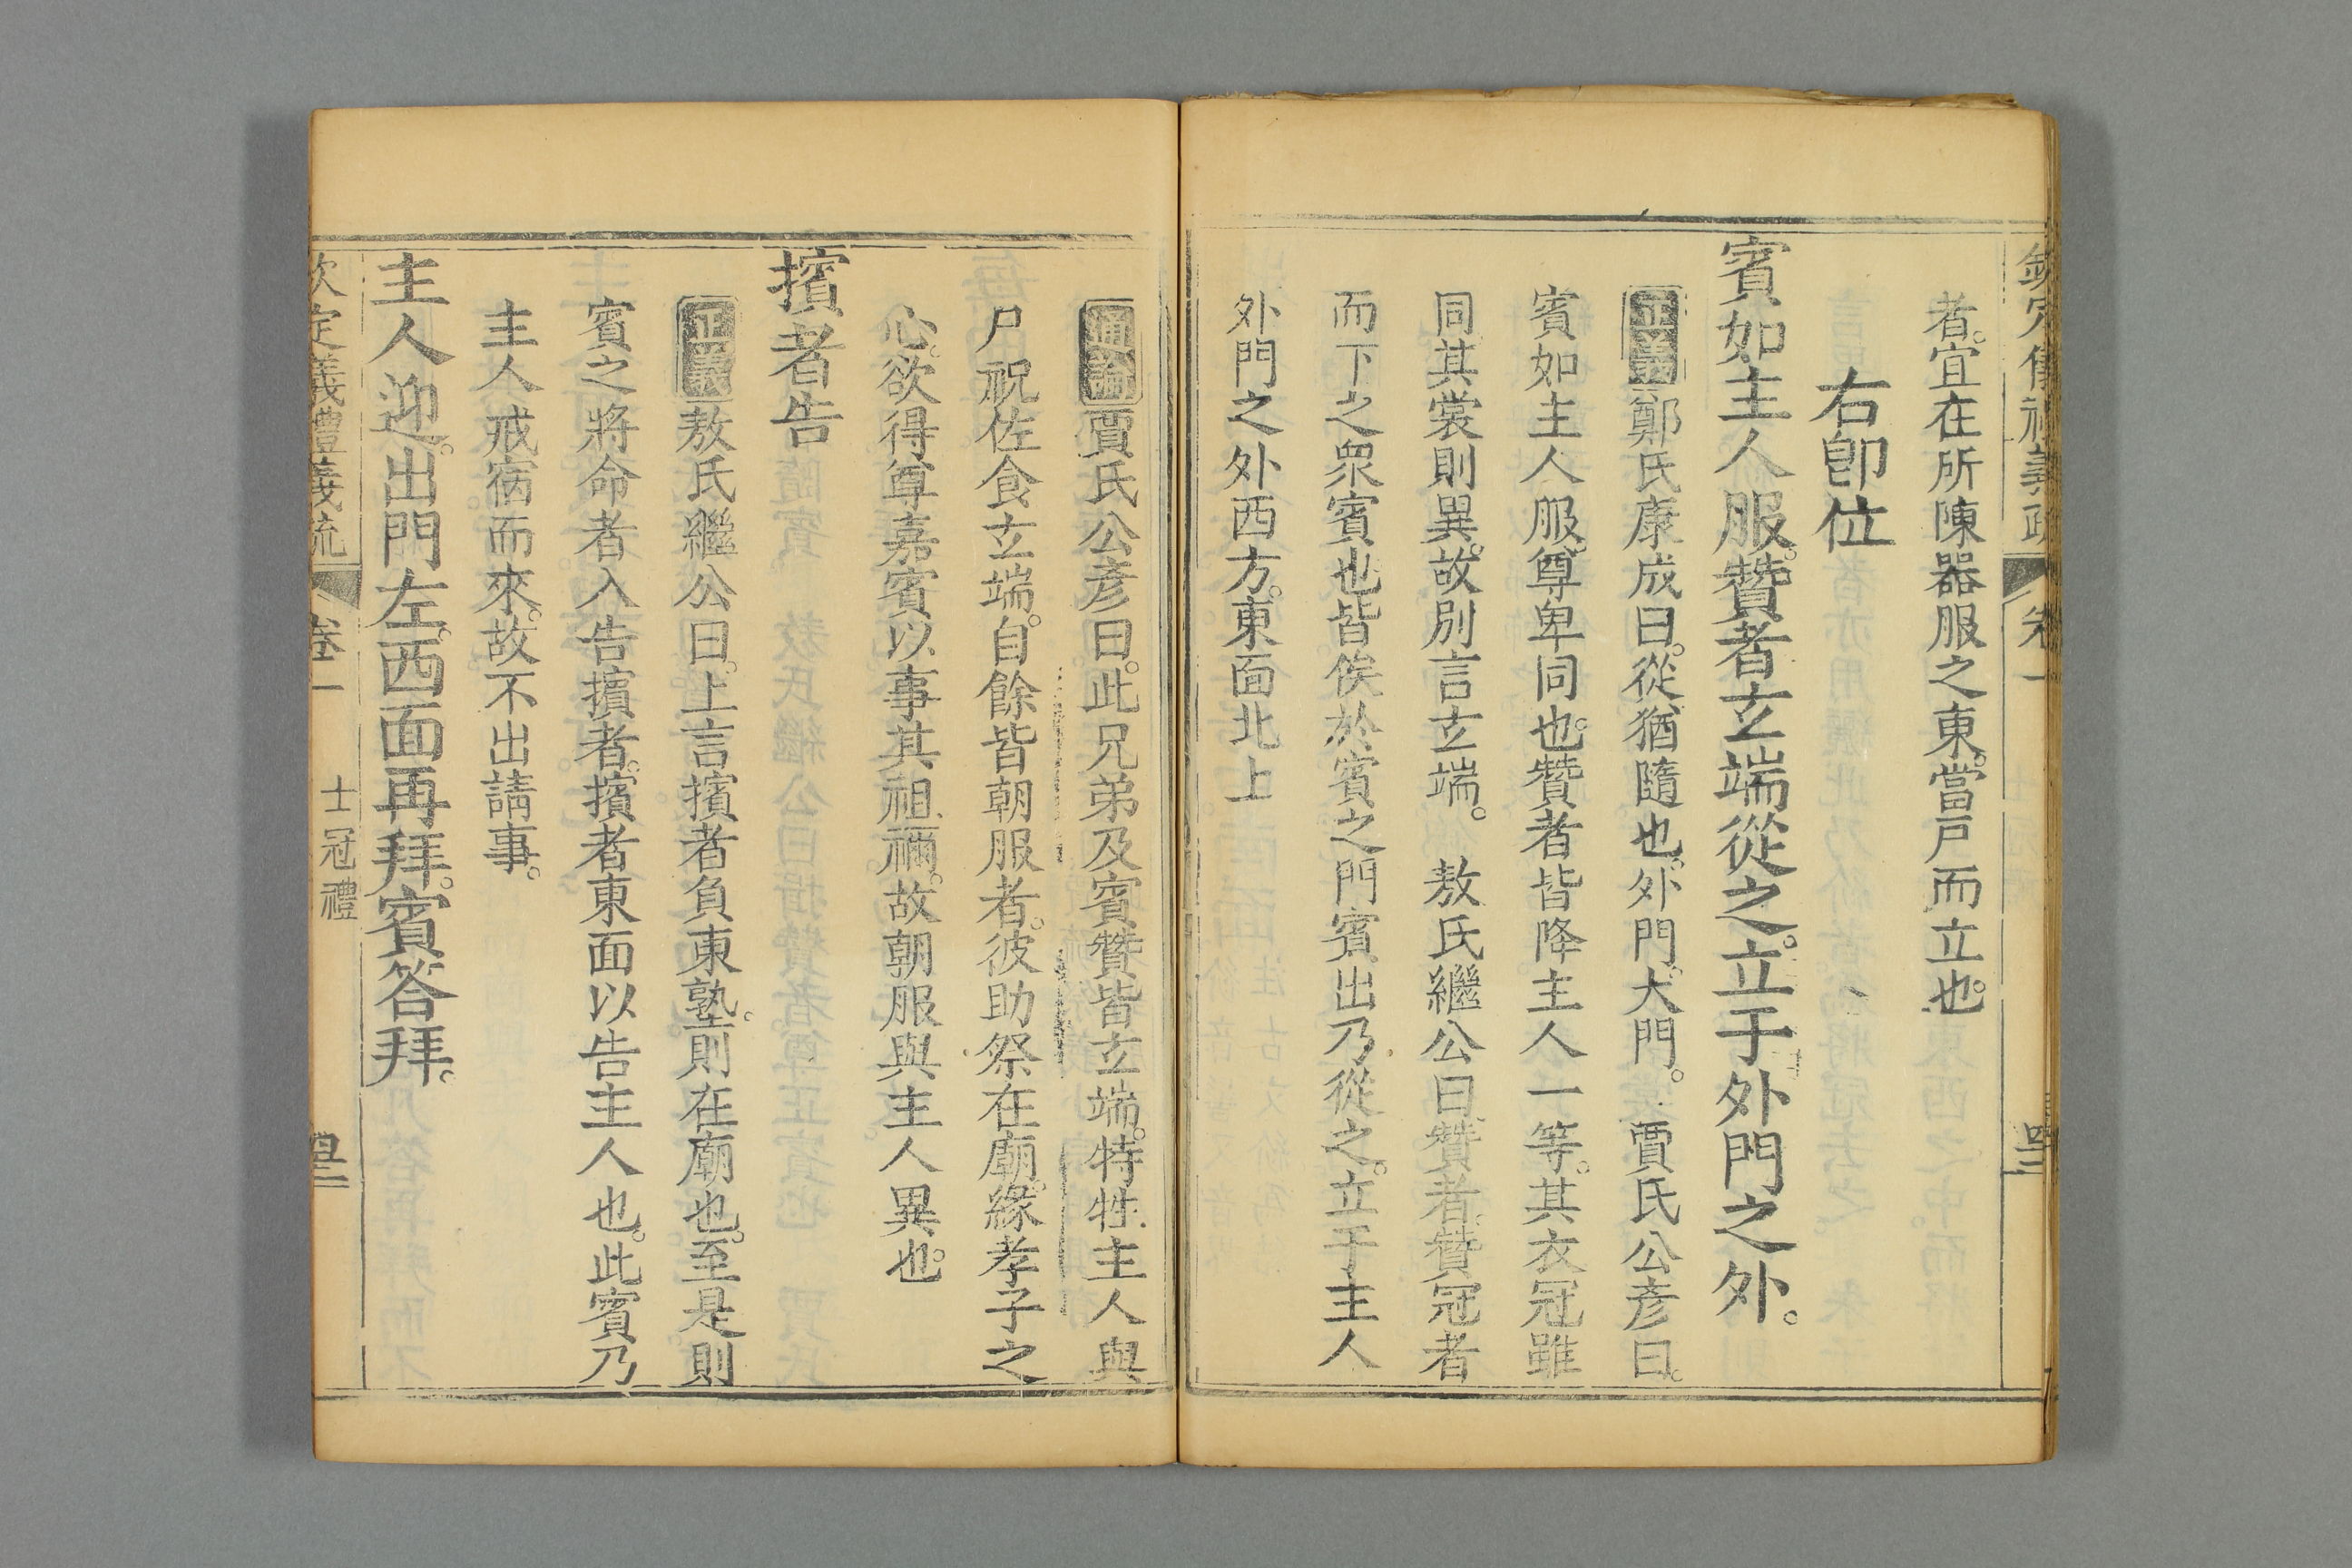 欽定儀禮義疏 卷一 四二
者。宜在所陳器服之東。當戸而立也。
右卽位
賓如主人服。贊者玄端從之。立于外門之外。
正義鄭氏康成曰。從。猶隨也。外門。大門。 賈氏公彥曰。
賓如主人服。尊卑同也。贊者皆降主人一等。其衣冠雖
同其裳則異。故別言玄端。 敖氏繼公曰贊者。贊冠者
而下之衆賓也皆俟於賓之門賓出乃從之。立于主人
外門之外西方。東面北上
通論賈氏公彥曰。此兄弟及賓贊皆玄端。特牲。主人與
尸祝佐食玄端。自餘皆朝服者。彼助祭在廟。緣孝子之
心。欲得尊嘉賓以事其祖禰。故朝服與主人異也。
擯者告
正義敖氏繼公曰。上言擯者負東塾。則在廟也。至是則
賓之將命者入告擯者。擯者東面以告主人也。此賓乃
主人戒宿而來。故不出請事。
主人迎。出門左。西面再拜。賓答拜。
欽定義禮義疏 卷一 士冠禮 四二